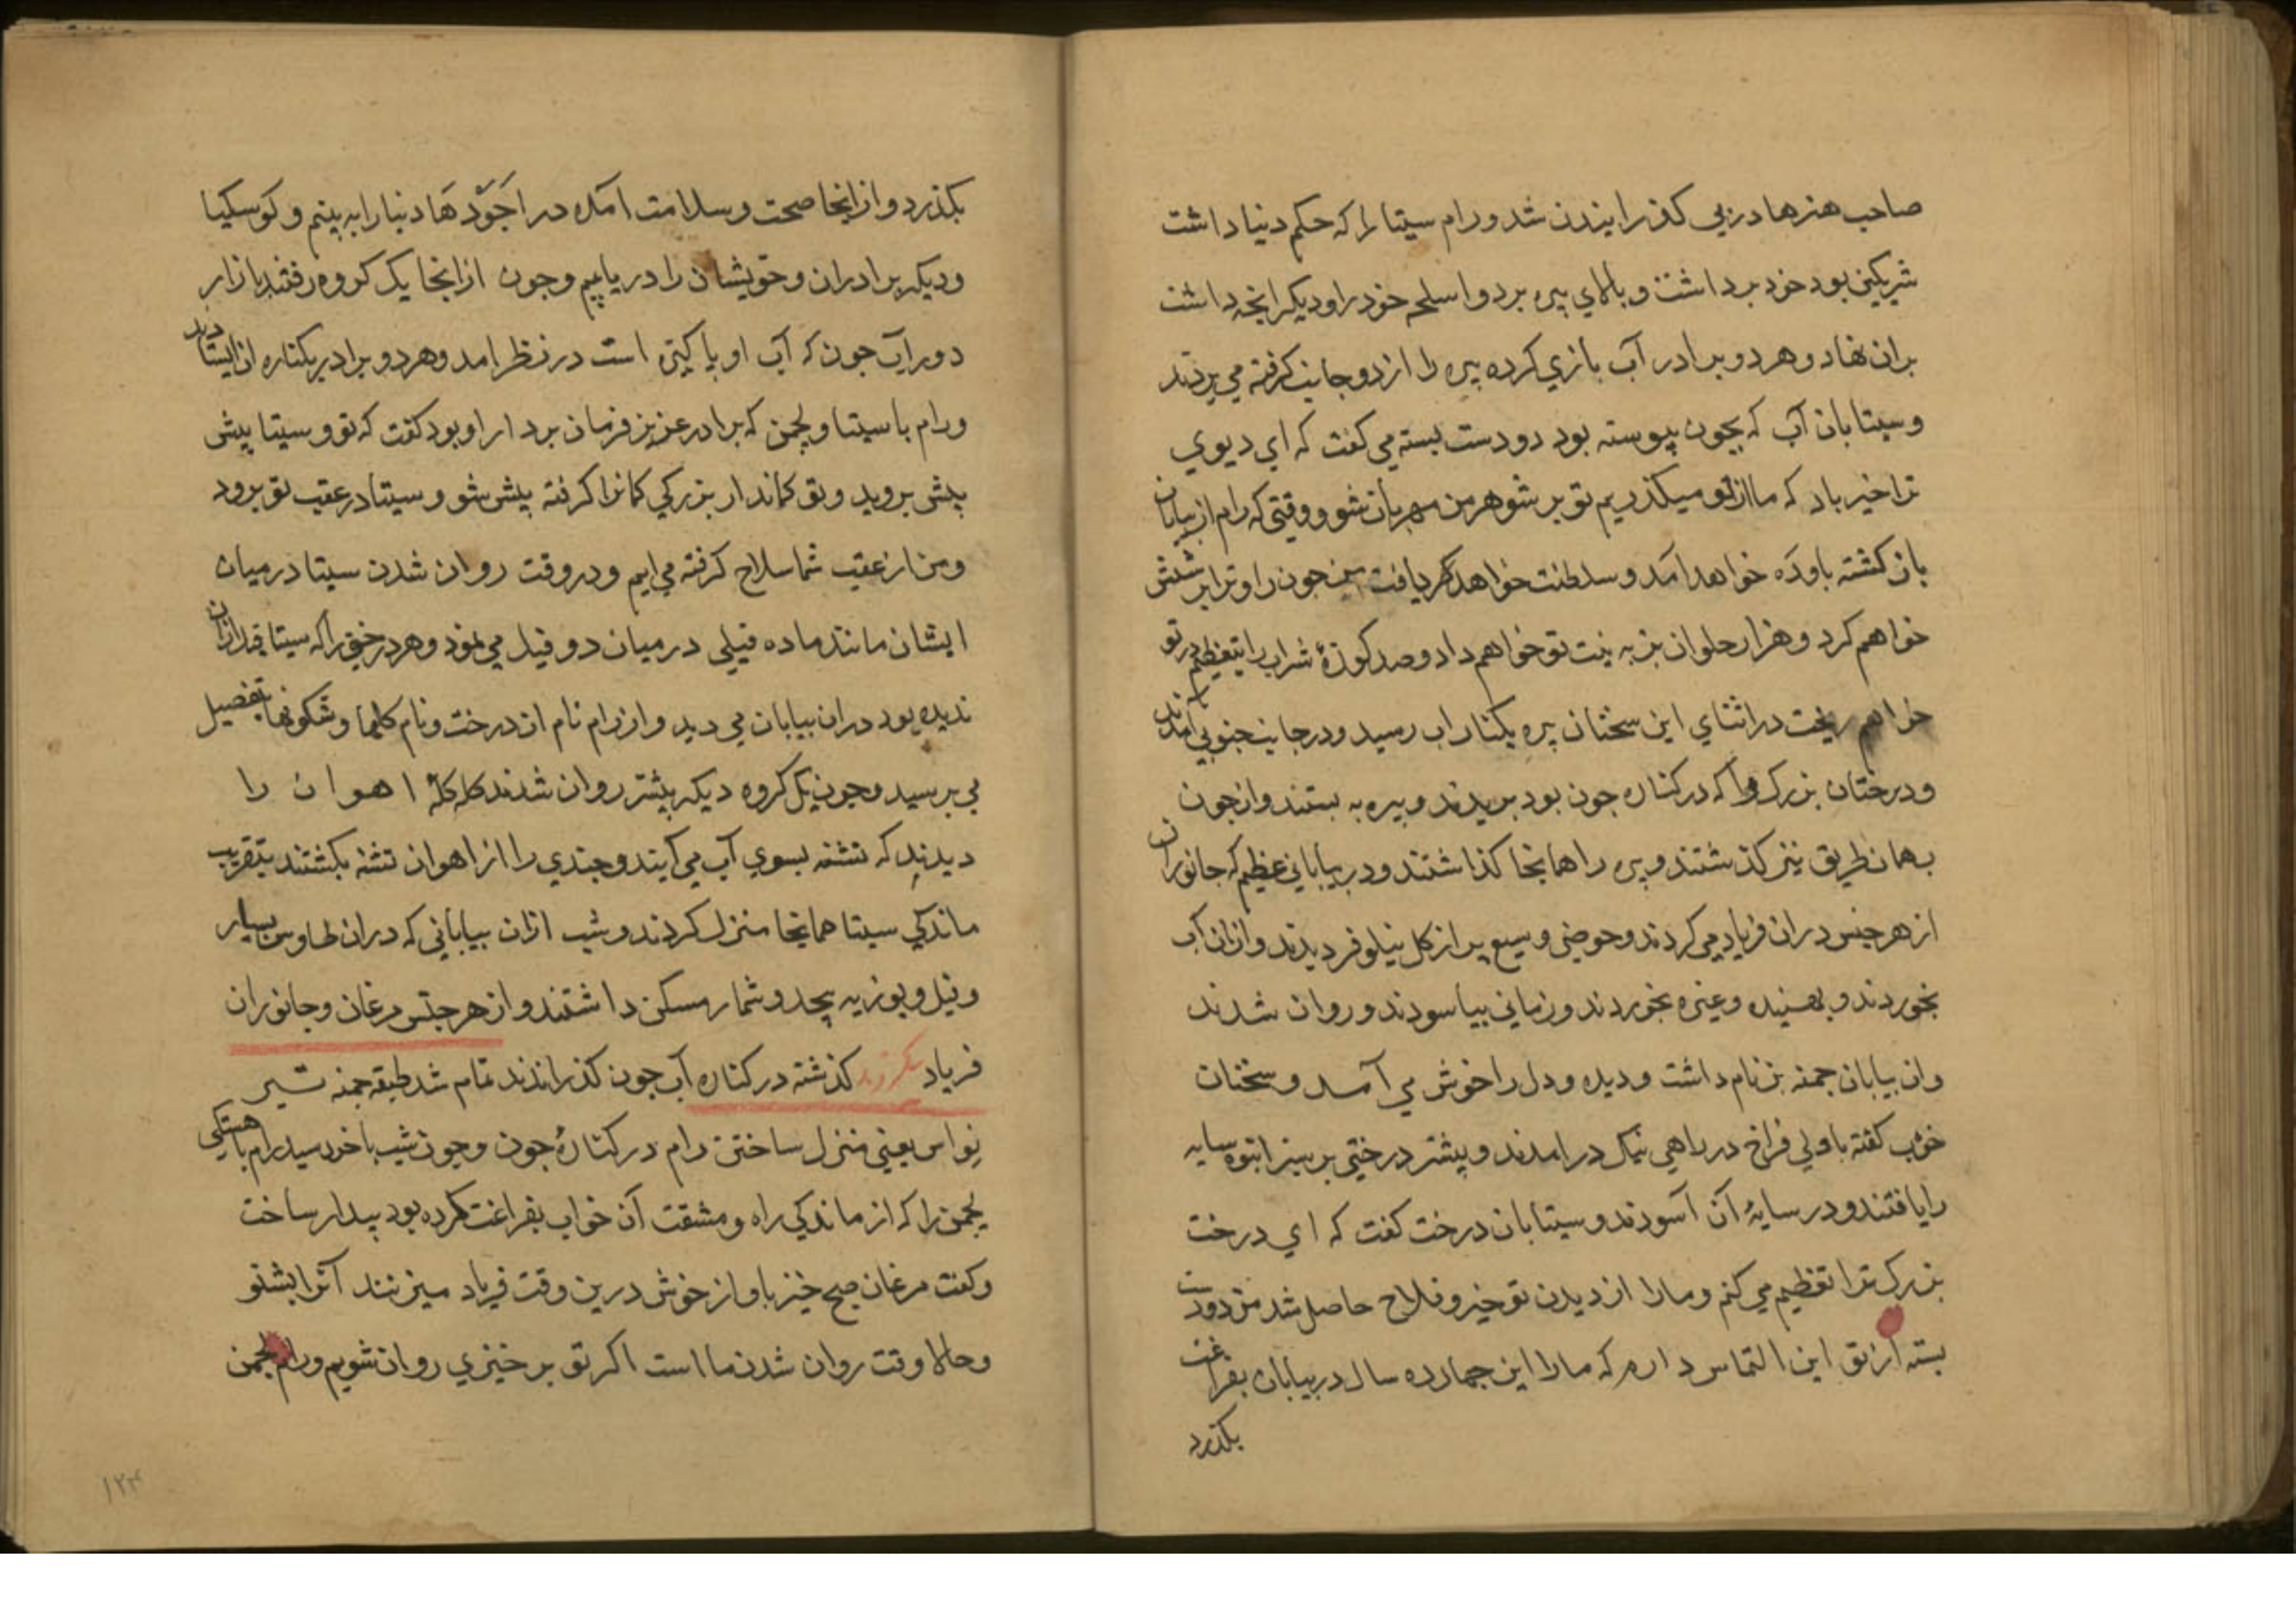 صاحب هنرها در پی کذرانیدن شد و رام سیتا را که حکم دنیا داشت
شریکین بود خود برداشت و بالای بیره برد و اسلحه خود را و دیکر انجه داشت
بران نهاد و هر دو برادر آب بازی کرده بیره را از دو جانب کرفته می بردند
و سیتا بان آب که بجون پیوسته بود دو دست بسته می کفت که ای دیوی
ترا خیر باد که ما از تو میکذریم تو بر شوهر من مهربان شو و وقتی که رام از بیابان
باز کشته باوده خواهد آمد و سلطنت خواهد کرد یافت من جون را و ترا پرستش
خواهم کرد و هزار حلوان بز به نیت تو خواهم داد و صد کوزهٔ شراب را بتعظیم در تو
خواهم ریخت در اثنای این سخنان بیره بکنار اب رسید و در جانب جنوبی آمدند
و درختان بزرک را که در کناره جون بود بریدند و بیره به بستند و از جون
بهمان طریق نیز کذشتند و بیره را همانجا کذاشتند و در بیابانی عظیم که جانوران
از هر جنس در ان فریاد می کردند و حوضی وسیع پر از کل نیلوفر دیدند و ازان آب
بخوردند و بهسینده و غیره بخوردند و زمانی بیاسودند و روان شدند
وان بیابان جمنه بن نام داشت و دیده و دل را خوش می آمد و سخنان
خوب کفته با دلی فراخ در راهی نیک درامدند و پیشتر درختی بر سبز انبوه سایه
را یافتند و در سایهٔ آن آسودند و سیتا بان درخت کفت که ای درخت
بزرک ترا تعظیم می کنم و ما را از دیدن تو خیر و فلاح حاصل شد من دو دست
بسته از تو این التماس دارم که ما را این جهارده سال در بیابان بفراغت
بکذرد
بکذرد و از انجا صحت و سلامت آمده در اجَوّدهَا دنیا را به بینم و کوسکیا
و دیکر برادران و خویشان را دریابیم و جون از انجا یک کروه رفتند بازار
دور آب جون که آب او پاکیتی است در نظر امد و هر دو برادر بکناره ان ایستادند
و رام با سیتا و لجمن که برادر عزیز فرمان بردار او بود کفت که تو و سیتا پیش
پیش بروید و تو کماندار بزرکی کمانرا کرفته پیش شو و سیتا در عقب تو برود
و من از عقب شما سلاح کرفته می ایم و در وقت روان شدن سیتا درمیان
ایشان مانند ماده فیلی درمیان دو فیل می نمود و هر درختی را که سیتا قبل ازان
ندیده بود دران بیابان می دید و از رام نام ان درخت و نام کلها و شکوفها بتفصیل
می برسید و جون یک کروه دیکر پیشتر روان شدند کله کلهٔ اهوان را
دیدند که تشنه بسوی آب می آیند و جندی را از اهوان تشنه بکشتند بتقریب
ماندکی سیتا همانجا منزل کردند و شب ازان بیابانی که دران طاوس بسیار
و فیل و بوزنه بیحد و شمار مسکن داشتند و از هر جنس مرغان و جانوران
فریاد میکردند کذشته در کناره آب جون کذراندند تمام شد طبقه جمنه تسیر
نِواس یعنی منزل ساختن رام در کنارهٔ جون و جون شب باخر رسید رام باهستکی
لجمن را که از ماندکی راه و مشقت آن خواب بفراغت کرده بود بیدار ساخت
و کفت مرغان صبح خیز باواز خوش درین وقت فریاد میزنند آنرا بشنو
و حالا وقت روان شدن ما است اکر تو بر خیزی روان شویم و رام لجمن
۱۲۴